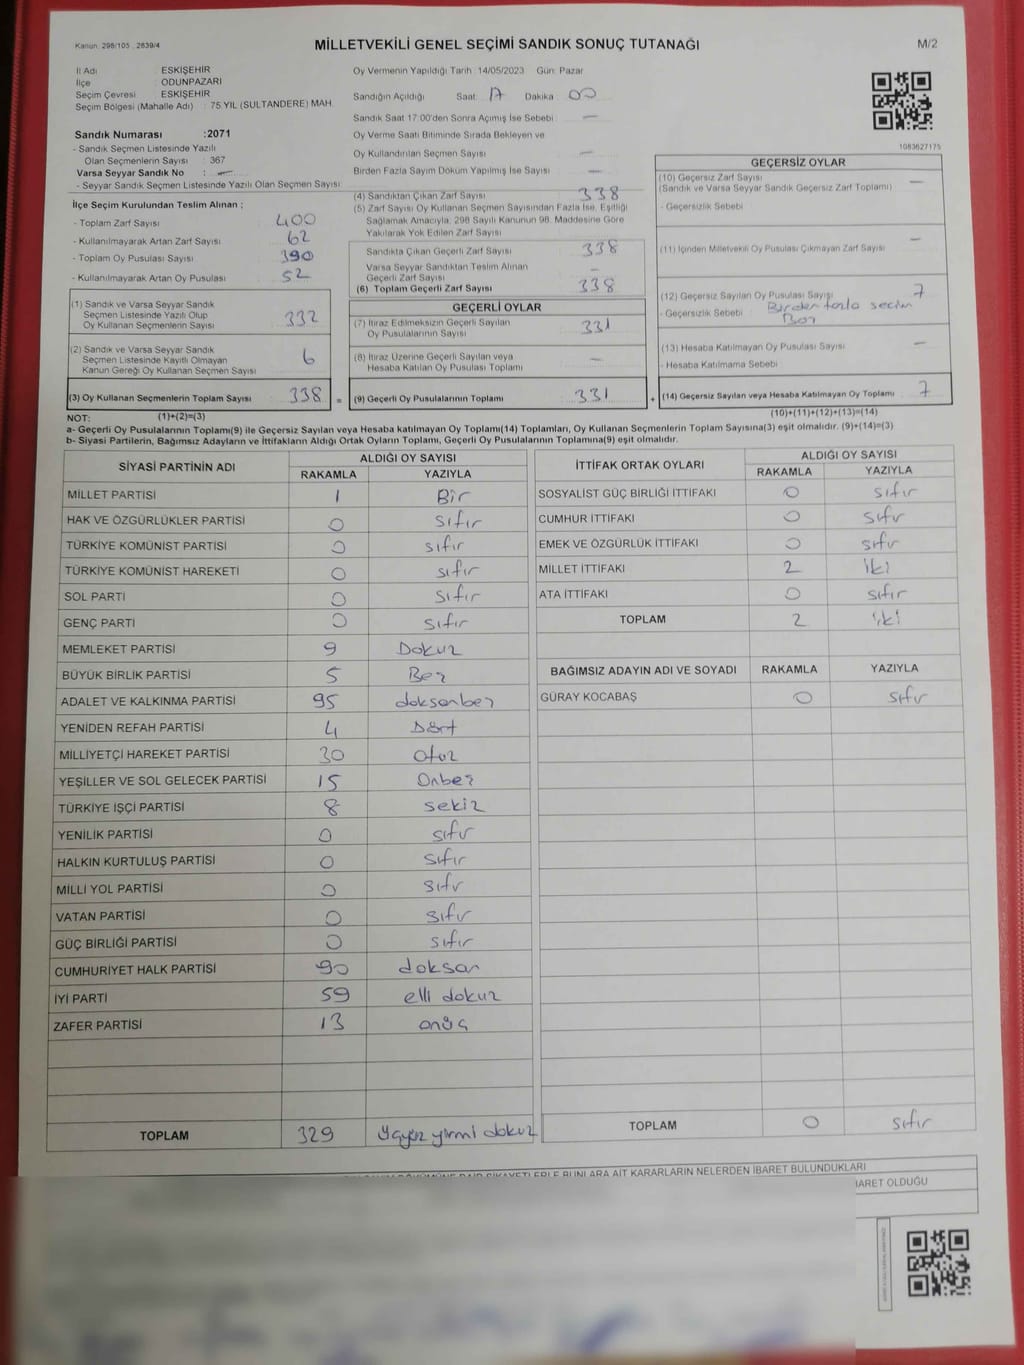 Kanun: 298/105 , 2839/4
MİLLETVEKİLİ GENEL SEÇİMİ SANDIK SONUÇ TUTANAĞI
M/2
İl Adı : ESKİŞEHİR
İlçe : ODUNPAZARI
Seçim Çevresi : ESKİŞEHİR
Seçim Bölgesi (Mahalle Adı) : 75 YIL (SULTANDERE) MAH.
Oy Vermenin Yapıldığı Tarih : 14/05/2023 Gün: Pazar
Sandığın Açıldığı Saat: 17 Dakika 00
Sandık Saat 17:00'den Sonra Açılmış İse Sebebi : —
Oy Verme Saati Bitiminde Sırada Bekleyen ve
Oy Kullandırılan Seçmen Sayısı : —
Birden Fazla Sayım Döküm Yapılmış İse Sayısı : —
1083627175
Sandık Numarası :2071
- Sandık Seçmen Listesinde Yazılı
Olan Seçmenlerin Sayısı : 367
Varsa Seyyar Sandık No : —
- Seyyar Sandık Seçmen Listesinde Yazılı Olan Seçmen Sayısı :
İlçe Seçim Kurulundan Teslim Alınan ;
- Toplam Zarf Sayısı : 400
- Kullanılmayarak Artan Zarf Sayısı : 62
- Toplam Oy Pusulası Sayısı : 390
- Kullanılmayarak Artan Oy Pusulası : 52
(1) Sandık ve Varsa Seyyar Sandık
Seçmen Listesinde Yazılı Olup
Oy Kullanan Seçmenlerin Sayısı : 332
(2) Sandık ve Varsa Seyyar Sandık
Seçmen Listesinde Kayıtlı Olmayan
Kanun Gereği Oy Kullanan Seçmen Sayısı : 6
(3) Oy Kullanan Seçmenlerin Toplam Sayısı : 338 =
(4) Sandıktan Çıkan Zarf Sayısı : 338
(5) Zarf Sayısı Oy Kullanan Seçmen Sayısından Fazla İse, Eşitliği
Sağlamak Amacıyla, 298 Sayılı Kanunun 98. Maddesine Göre
Yakılarak Yok Edilen Zarf Sayısı : —
Sandıkta Çıkan Geçerli Zarf Sayısı : 338
Varsa Seyyar Sandıktan Teslim Alınan
Geçerli Zarf Sayısı : —
(6) Toplam Geçerli Zarf Sayısı : 338
GEÇERLİ OYLAR
(7) İtiraz Edilmeksizin Geçerli Sayılan
Oy Pusulalarının Sayısı : 331
(8) İtiraz Üzerine Geçerli Sayılan veya
Hesaba Katılan Oy Pusulası Toplamı : —
(9) Geçerli Oy Pusulalarının Toplamı : 331 +
GEÇERSİZ OYLAR
(10) Geçersiz Zarf Sayısı
(Sandık ve Varsa Seyyar Sandık Geçersiz Zarf Toplamı) : —
- Geçersizlik Sebebi :
(11) İçinden Milletvekili Oy Pusulası Çıkmayan Zarf Sayısı : —
(12) Geçersiz Sayılan Oy Pusulası Sayısı : 7
- Geçersizlik Sebebi : Birden fazla seçim
(13) Hesaba Katılmayan Oy Pusulası Sayısı : —
- Hesaba Katılmama Sebebi :
(14) Geçersiz Sayılan veya Hesaba Katılmayan Oy Toplamı : 7
NOT: (1)+(2)=(3)
(10)+(11)+(12)+(13)=(14)
a- Geçerli Oy Pusulalarının Toplamı(9) ile Geçersiz Sayılan veya Hesaba katılmayan Oy Toplamı(14) Toplamları, Oy Kullanan Seçmenlerin Toplam Sayısına(3) eşit olmalıdır. (9)+(14)=(3)
b- Siyasi Partilerin, Bağımsız Adayların ve İttifakların Aldığı Ortak Oyların Toplamı, Geçerli Oy Pusulalarının Toplamına(9) eşit olmalıdır.
SİYASİ PARTİNİN ADI ALDIĞI OY SAYISI
RAKAMLA YAZIYLA
MİLLET PARTİSİ 1 Bir
HAK VE ÖZGÜRLÜKLER PARTİSİ 0 sıfır
TÜRKİYE KOMÜNİST PARTİSİ 0 sıfır
TÜRKİYE KOMÜNİST HAREKETİ 0 sıfır
SOL PARTİ 0 sıfır
GENÇ PARTİ 0 sıfır
MEMLEKET PARTİSİ 9 Dokuz
BÜYÜK BİRLİK PARTİSİ 5 Beş
ADALET VE KALKINMA PARTİSİ 95 doksanbeş
YENİDEN REFAH PARTİSİ 4 Dört
MİLLİYETÇİ HAREKET PARTİSİ 30 Otuz
YEŞİLLER VE SOL GELECEK PARTİSİ 15 Onbeş
TÜRKİYE İŞÇİ PARTİSİ 8 sekiz
YENİLİK PARTİSİ 0 sıfır
HALKIN KURTULUŞ PARTİSİ 0 sıfır
MİLLİ YOL PARTİSİ 0 sıfır
VATAN PARTİSİ 0 sıfır
GÜÇ BİRLİĞİ PARTİSİ 0 sıfır
CUMHURİYET HALK PARTİSİ 90 doksan
İYİ PARTİ 59 elli dokuz
ZAFER PARTİSİ 13 onüç
TOPLAM 329 üçyüz yirmi dokuz
İTTİFAK ORTAK OYLARI ALDIĞI OY SAYISI
RAKAMLA YAZIYLA
SOSYALİST GÜÇ BİRLİĞİ İTTİFAKI 0 sıfır
CUMHUR İTTİFAKI 0 sıfır
EMEK VE ÖZGÜRLÜK İTTİFAKI 0 sıfır
MİLLET İTTİFAKI 2 iki
ATA İTTİFAKI 0 sıfır
TOPLAM 2 iki
BAĞIMSIZ ADAYIN ADI VE SOYADI RAKAMLA YAZIYLA
GÜRAY KOCABAŞ 0 sıfır
TOPLAM 0 sıfır
ŞİKAYETLERLE BUNLARA AİT KARARLARIN NELERDEN İBARET BULUNDUKLARI
İBARET OLDUĞU